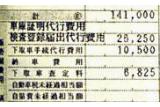 計 141,000
車庫証明代行費用
検査登録届出代行費用 26,250
下取車手続代行費用 10,500
納車費用
下取車査定料 6,825
自動車税未経過相当額
自賠責未経過相当額